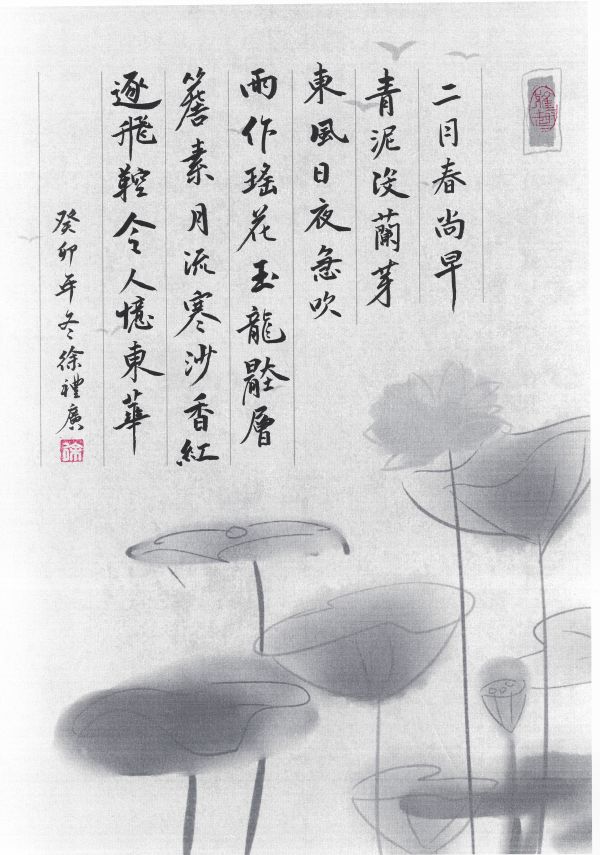 二月春尚早
青泥沒蘭芽
東風日夜急吹
雨作瑤花玉龍壁層
簷素月流寒沙香紅
逐飛鞚今人憶東華
癸卯年冬徐禮廣